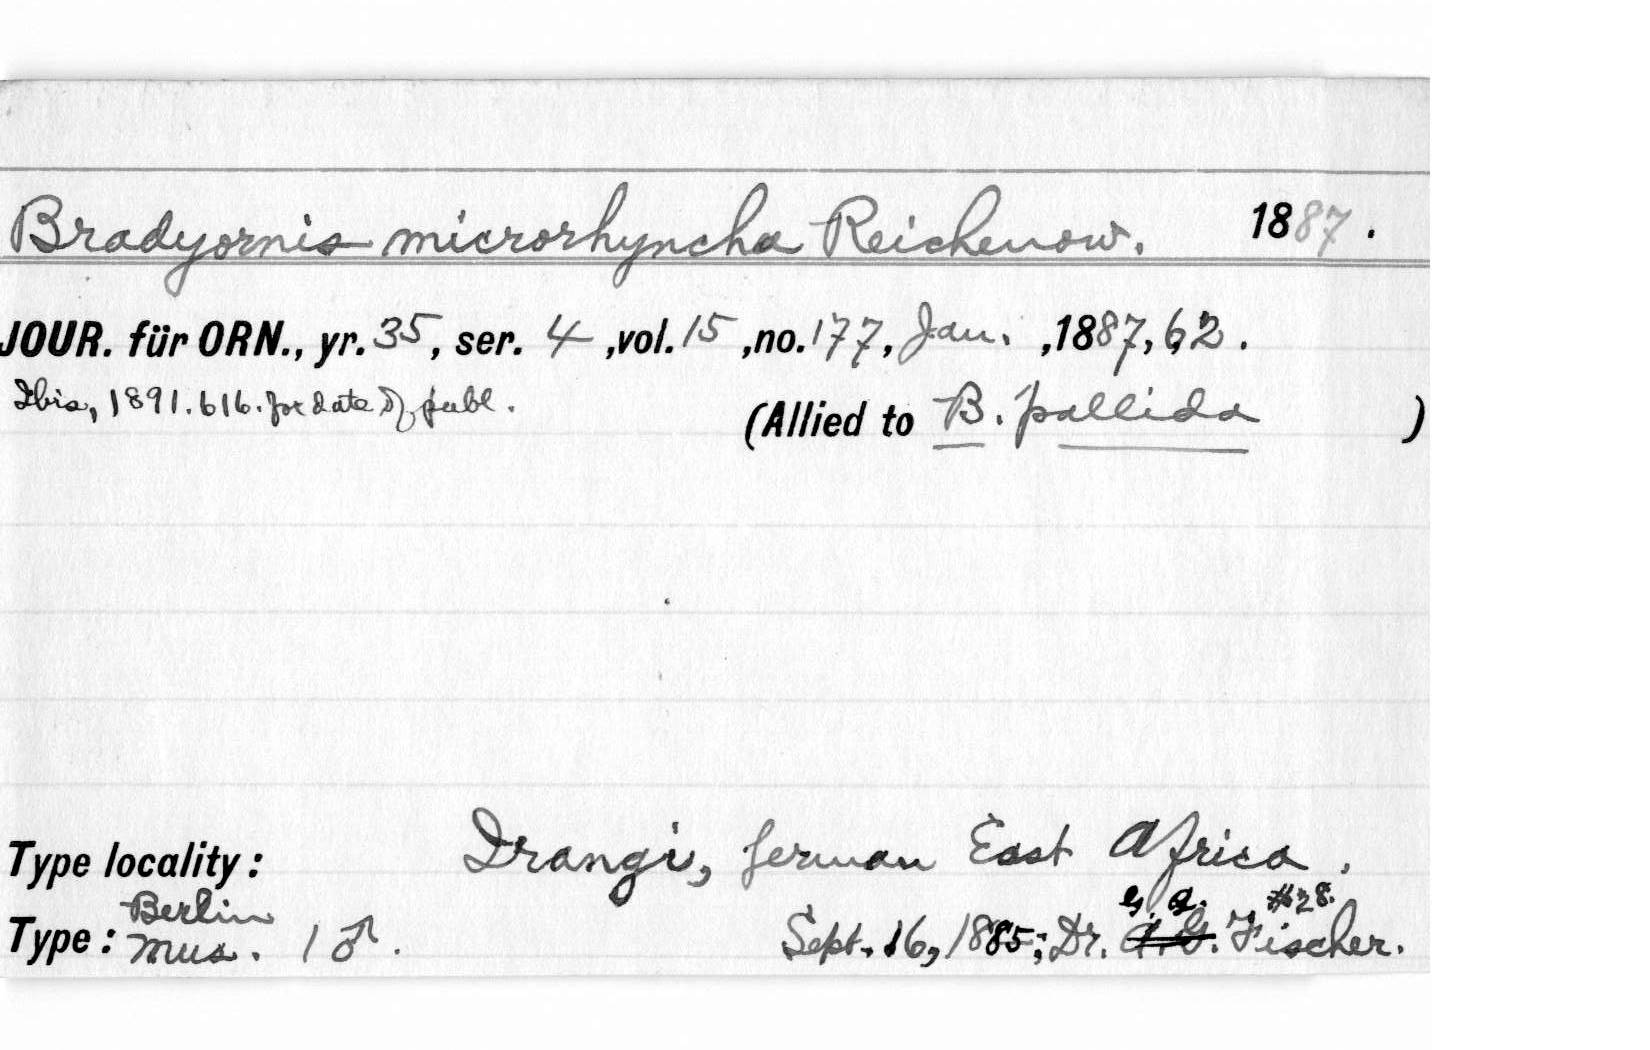 Bradyornis microrhyncha Reichenow. 1887.
JOUR. für ORN., yr. 35, ser. 4, vol. 15, no. 177, Jan., 1887, 62.
Ibis, 1891. 616. for date of publ.
(Allied to B. pallida )
Type locality: Irangi, German East Africa.
Berlin G. A. #28.
Type: Mus. 1 ♂. Sept. 16, 1885; Dr. A. G. Fischer.